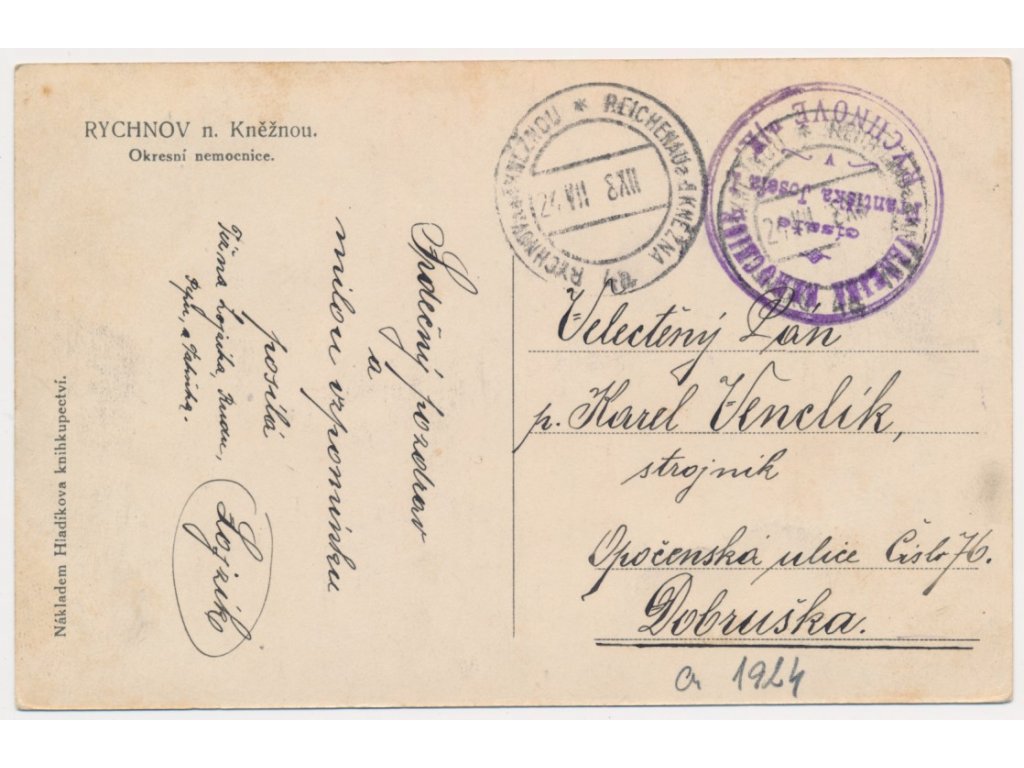 RYCHNOV n. Kněžnou.
Okresní nemocnice.
Nákladem Hladíkova knihkupectví.
Srdečný pozdrav
a
milou vzpomínku
posílá
Lojzík
REICHENAU a.d. KNĚŽNA
RYCHNOV KNĚŽNOU
V RYCHNOVĚ
Františka Josefa
Velectěný Pán
p. Karel Venclík,
strojník
Opočenská ulice Číslo 76.
Dobruška.
1924